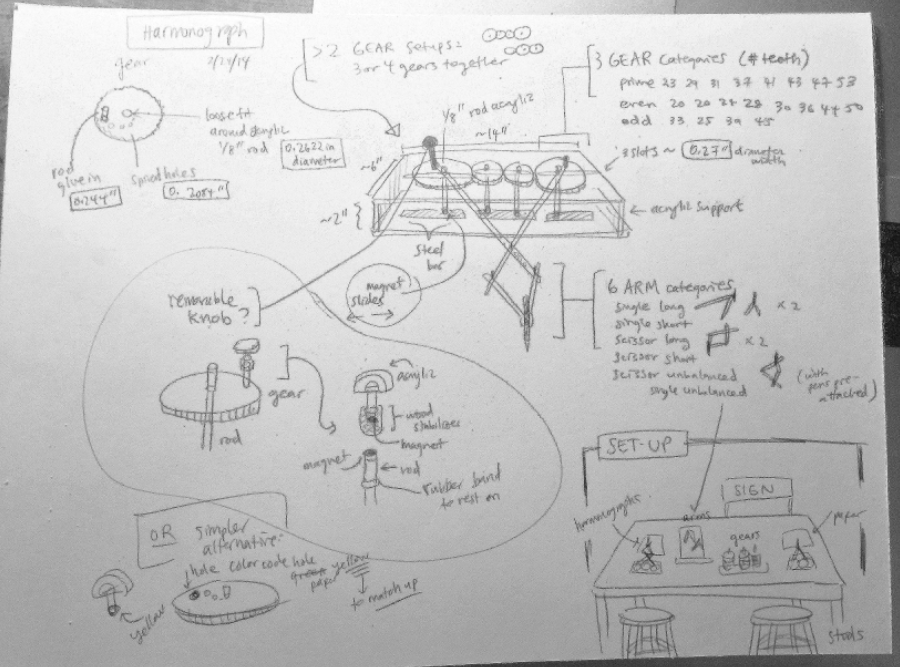 Harmonograph
2/23/14
> 2 GEAR setups:
3 or 4 gears together
3 GEAR Categories (# teeth)
prime 23 29 31 37 41 43 47 53
even 20 20 24 28 30 36 44 50
odd 33 25 39 45
gear
loose fit
around acrylic
1/8" rod
0.2622 in
diameter
rod
glue in
0.244"
spiral holes
0.2084"
1/8" rod acrylic
~14"
~6"
~2"
3 slots ~ 0.27" diameter
width
acrylic support
steel
bar
magnet
slides
removable
knob?
6 ARM categories
single long
single short
scissor long
scissor short
scissor unbalanced
single unbalanced
x 2
x 2
(with
pens pre-
attached)
gear
rod
acrylic
wood
stabilizer
magnet
magnet
rod
rubber band
to rest on
OR simpler
alternative:
hole color code hole
yellow
paper
to match up
yellow
SET-UP
SIGN
harmonographs
arms
gears
paper
stools